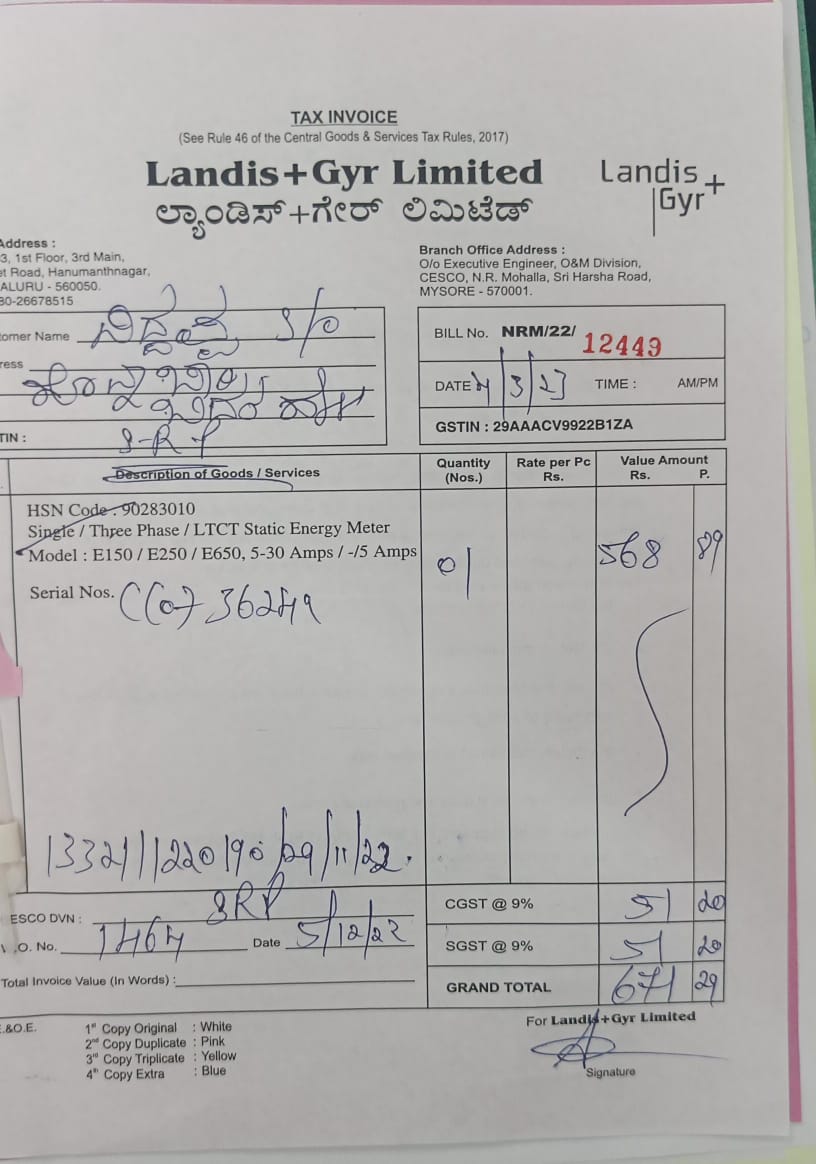 TAX INVOICE
(See Rule 46 of the Central Goods & Services Tax Rules, 2017)
Landis+Gyr Limited
ಲ್ಯಾಂಡಿಸ್+ಗೇರ್ ಲಿಮಿಟೆಡ್
Landis+
Gyr
Address :
3, 1st Floor, 3rd Main,
Road, Hanumanthnagar,
ALURU - 560050.
80-26678515
Branch Office Address :
O/o Executive Engineer, O&M Division,
CESCO, N.R. Mohalla, Sri Harsha Road,
MYSORE - 570001.
omer Name S/o
ress
TIN :
BILL No. NRM/22/ 12449
DATE /3/23 TIME : AM/PM
GSTIN : 29AAACV9922B1ZA
Description of Goods / Services
Quantity (Nos.)
Rate per Pc Rs.
Value Amount Rs. P.
HSN Code : 90283010
Single / Three Phase / LTCT Static Energy Meter
Model : E150 / E250 / E650, 5-30 Amps / -/5 Amps 01 568 89
Serial Nos.
/29/11/22.
ESCO DVN : SRP
.O. No. 1464 Date 5/12/22
Total Invoice Value (In Words) :
CGST @ 9% 51 20
SGST @ 9% 51 20
GRAND TOTAL 671 29
.&O.E.
1st Copy Original : White
2nd Copy Duplicate : Pink
3rd Copy Triplicate : Yellow
4th Copy Extra : Blue
For Landis+Gyr Limited
Signature